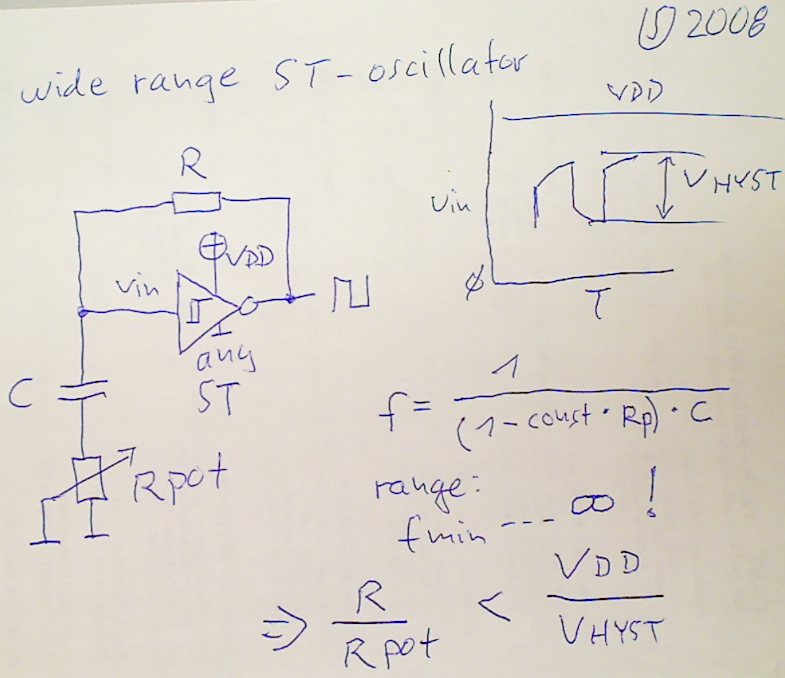 2008
wide range ST-oscillator
VDD
R
VDD
vin
any
ST
C
Rpot
vin
VHYST
∅
T
f = 1 / (1 - const · Rp) · C
range:
fmin --- ∞ !
⇒ R / Rpot < VDD / VHYST